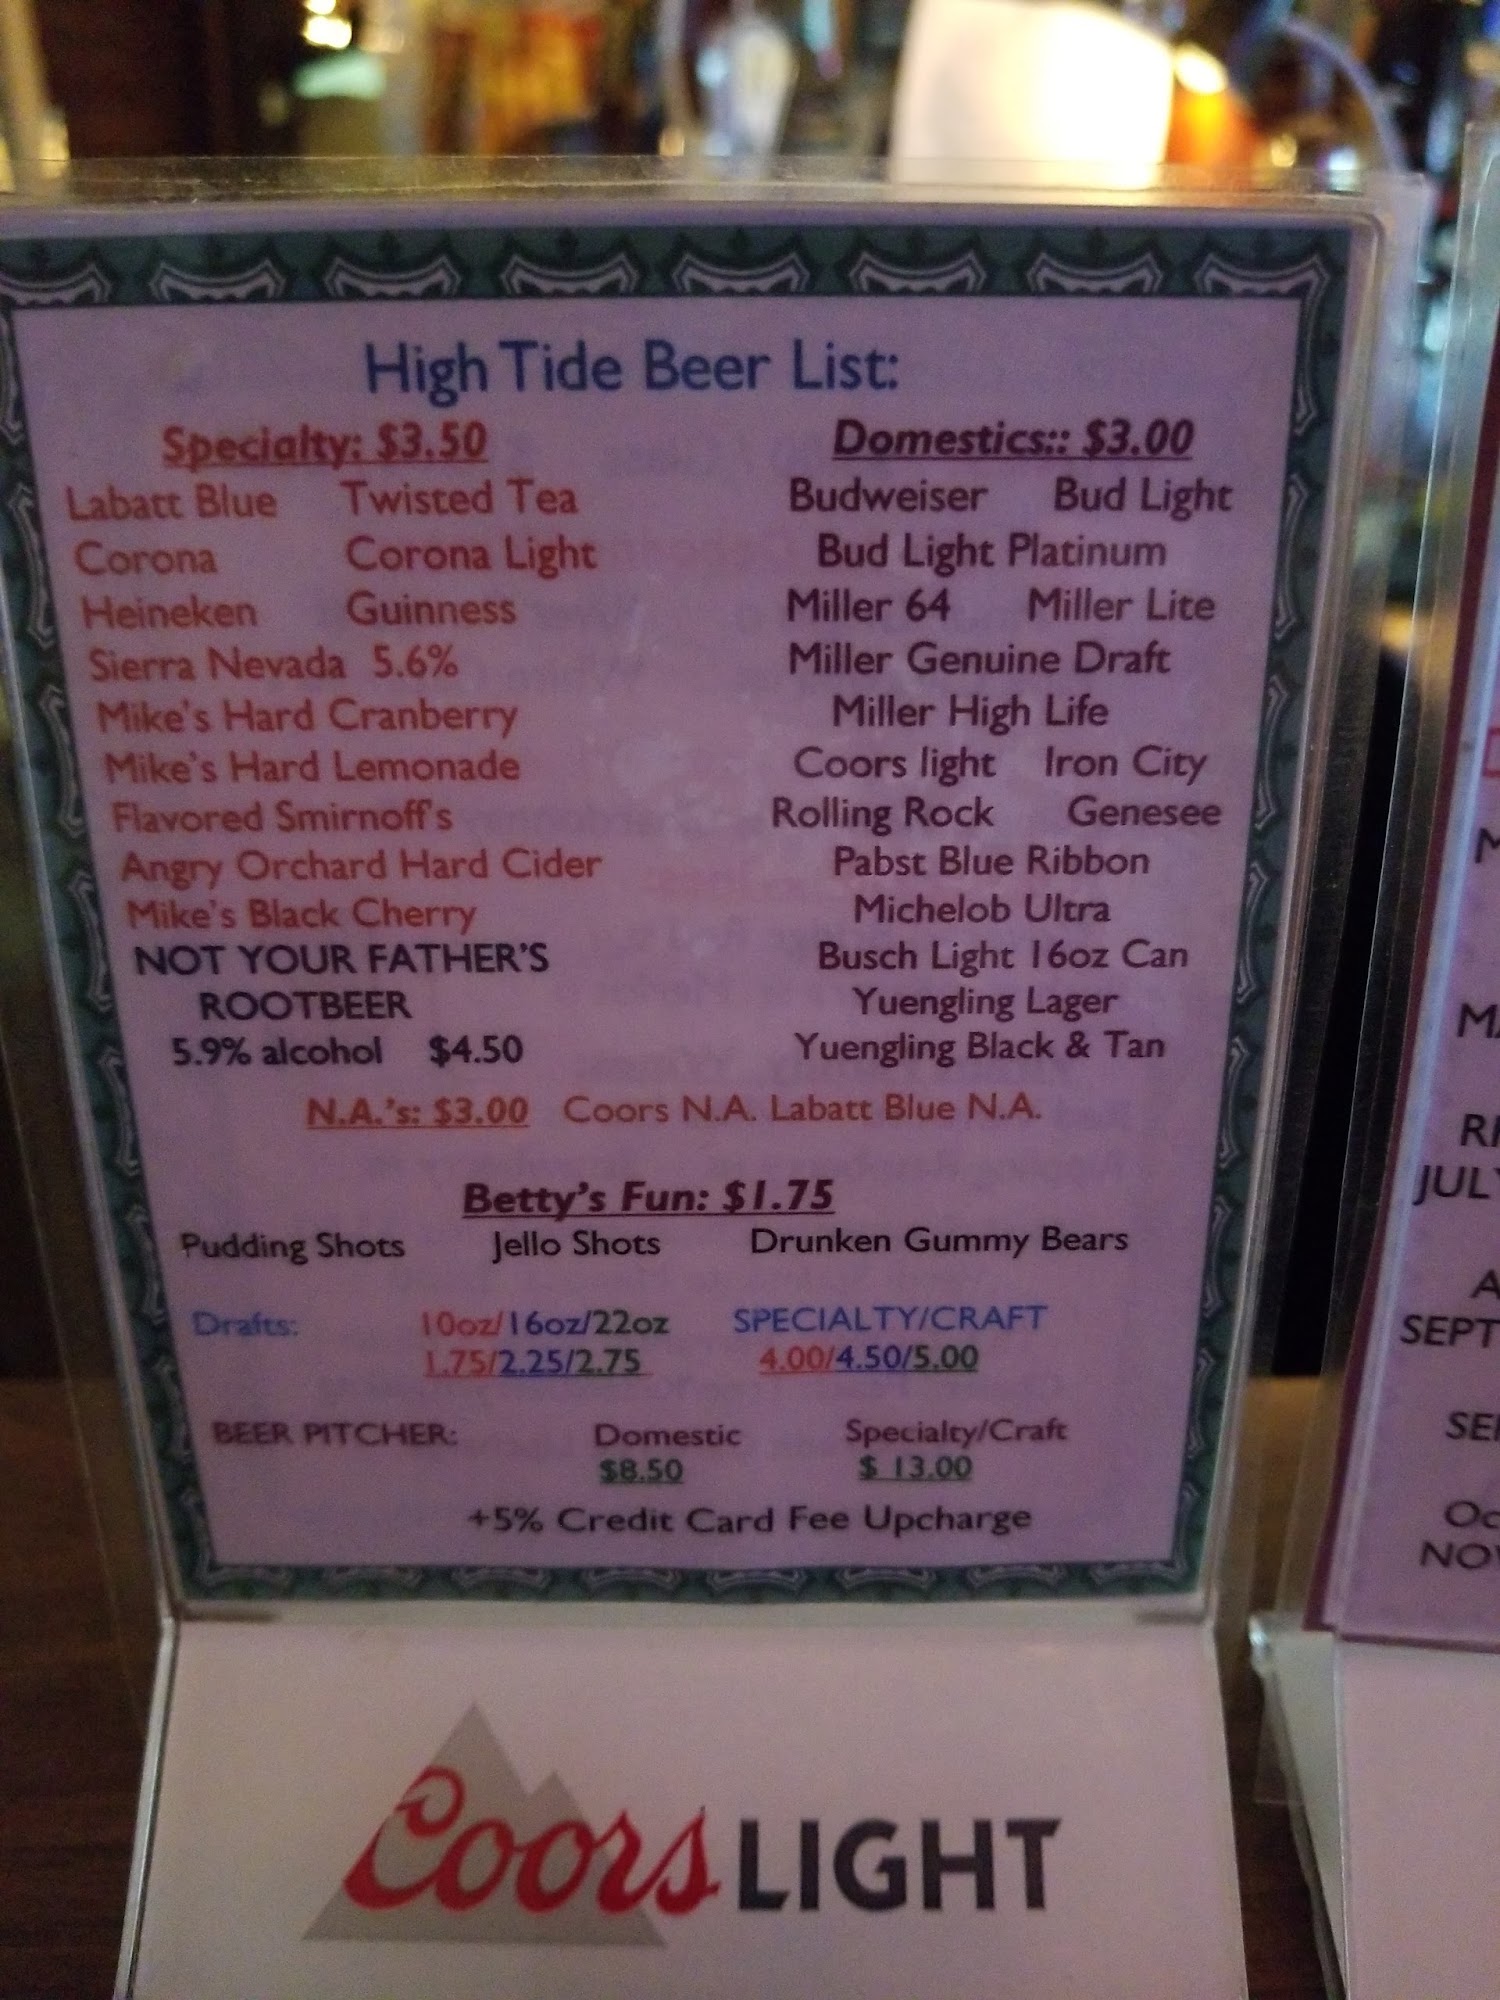 High Tide Beer List:
Specialty: $3.50
Labatt Blue Twisted Tea
Corona Corona Light
Heineken Guinness
Sierra Nevada 5.6%
Mike's Hard Cranberry
Mike's Hard Lemonade
Flavored Smirnoff's
Angry Orchard Hard Cider
Mike's Black Cherry
NOT YOUR FATHER'S
ROOTBEER
5.9% alcohol $4.50
Domestics:: $3.00
Budweiser Bud Light
Bud Light Platinum
Miller 64 Miller Lite
Miller Genuine Draft
Miller High Life
Coors light Iron City
Rolling Rock Genesee
Pabst Blue Ribbon
Michelob Ultra
Busch Light 16oz Can
Yuengling Lager
Yuengling Black & Tan
N.A.'s: $3.00 Coors N.A. Labatt Blue N.A.
Betty's Fun: $1.75
Pudding Shots Jello Shots Drunken Gummy Bears
Drafts: 10oz/16oz/22oz SPECIALTY/CRAFT
1.75/2.25/2.75 4.00/4.50/5.00
BEER PITCHER: Domestic Specialty/Craft
$8.50 $ 13.00
+5% Credit Card Fee Upcharge
Coors LIGHT
JULY
SEPT